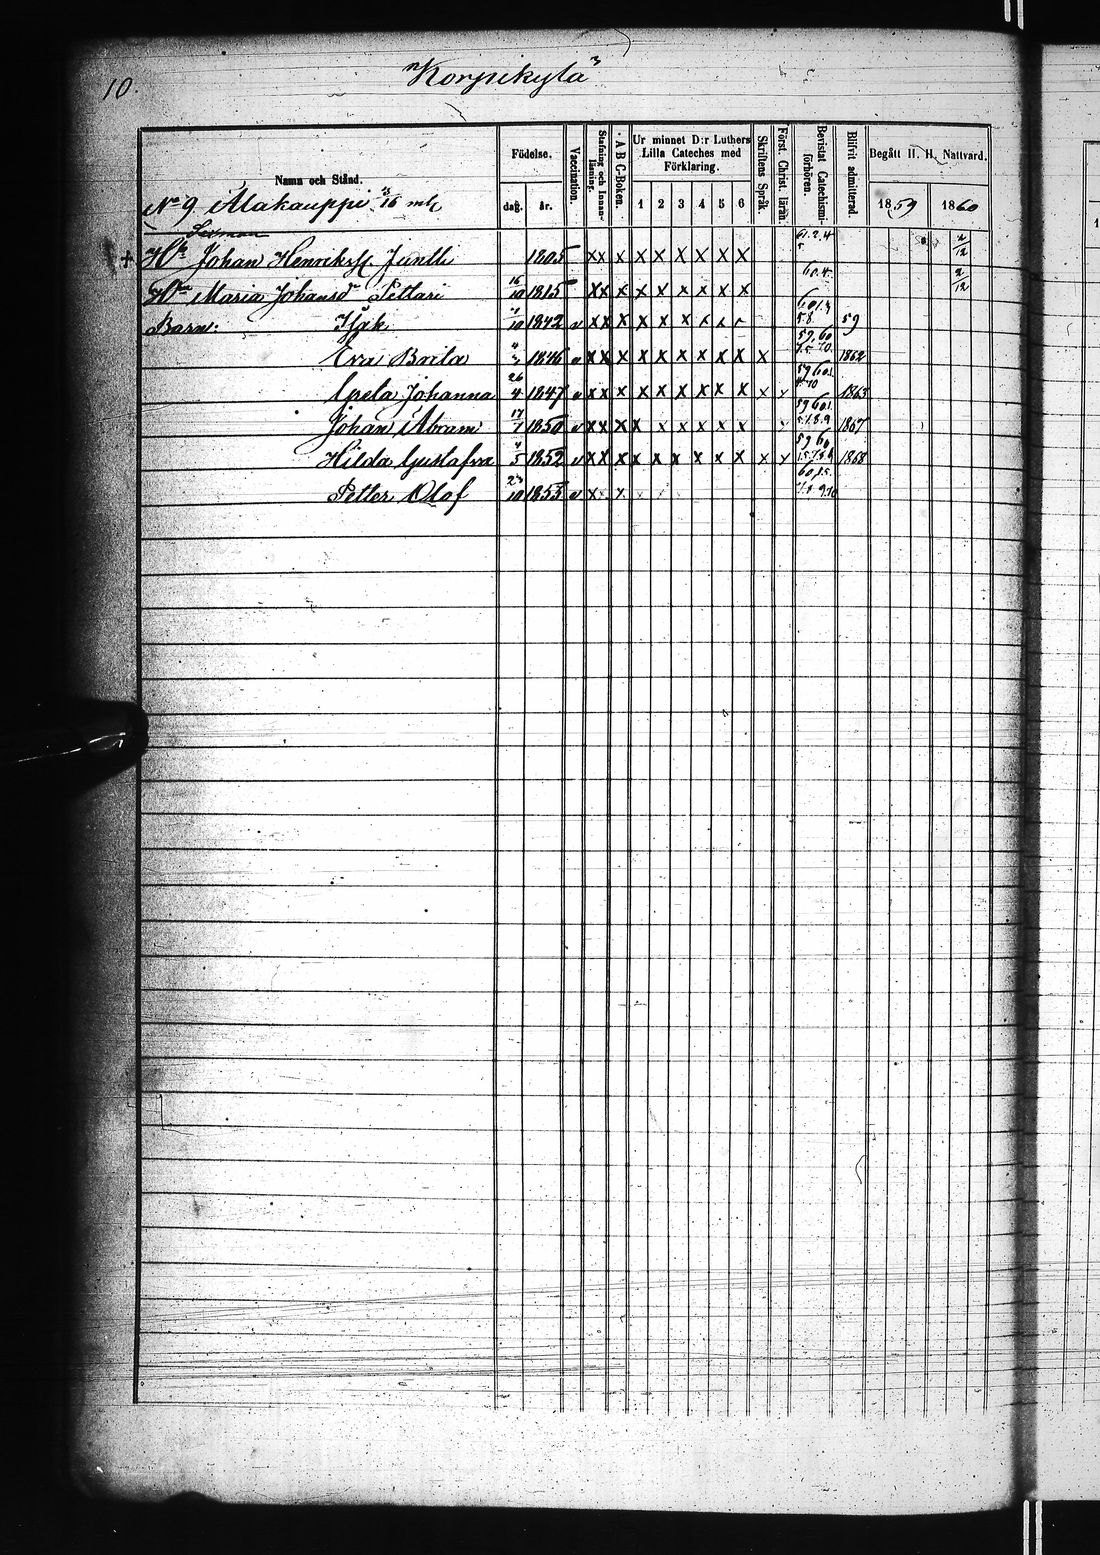 10.
Korpikylä
Namn och Stånd.
Födelse.
dag. år.
Vaccination.
Stafning och Innanläsning.
A B C-Boken.
Ur minnet D:r Luthers Lilla Cateches med Förklaring.
1 2 3 4 5 6
Skriftens Språk.
Först. Christ. läran.
Bevistat Catechismiförhören.
Blifvit admitterad.
Begått H. H. Nattvard.
1859 1860
No 9 Alakauppi
Sexman
+ Johan Henrikss Juntti 1805 x x x x x x x x x 2/12
Maria Johansd Pettari 16/10 1815 x x x x x x x x x 60.4. 2/12
Barn: Isak 1842 v x x x x x x 59
Eva Brita 1846 v x x x x x x x x x x 59,60 1862
Greta Johanna 26/4 1847 v x x x x x x x x x x 1863
Johan Abram 17/7 1850 v x x x x x x x x x 1867
Hilda Gustafva 1852 v x x x x x x x x x x 1868
Petter Olof 23/10 1853 v x x